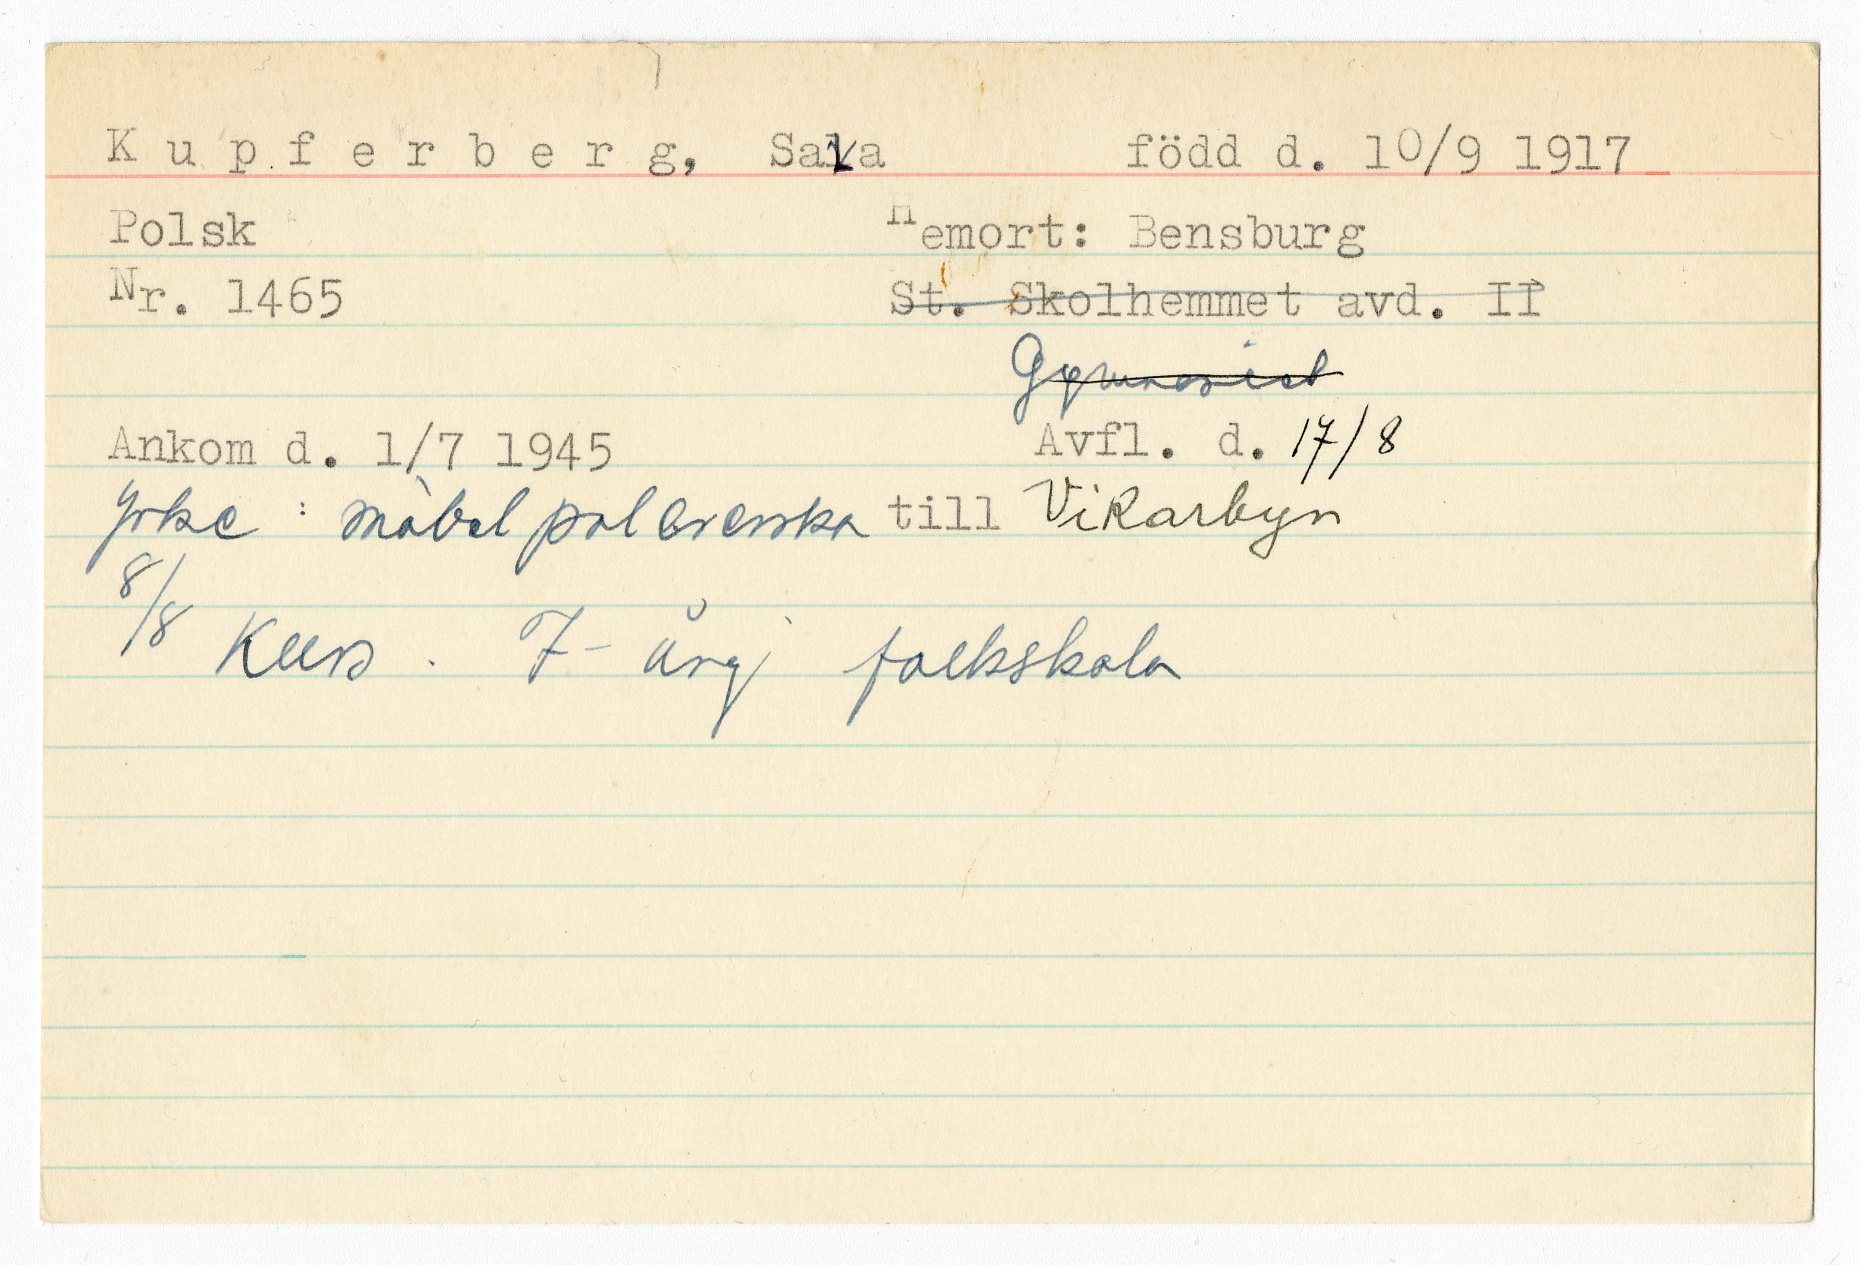 Kupferberg, Sala född d. 10/9 1917
Polsk Hemort: Bensburg
Nr. 1465 St. Skolhemmet avd. II
Gymnasiet
Ankom d. 1/7 1945 Avfl. d. 17/8
Yrke : möbelpolererska till Vikarbyn
8/8 Kurs . 7-årig folkskola